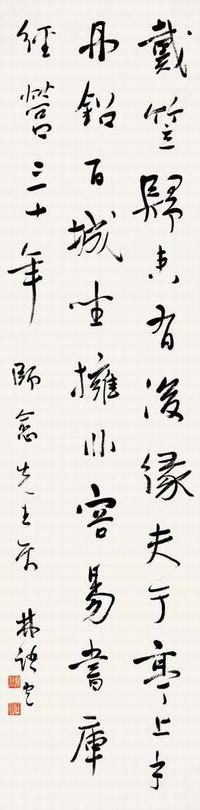 戴笠歸來有後緣夫于亭上手
丹鉛百城坐擁非容易書庫
經營三十年 師愈先生屬 林語堂